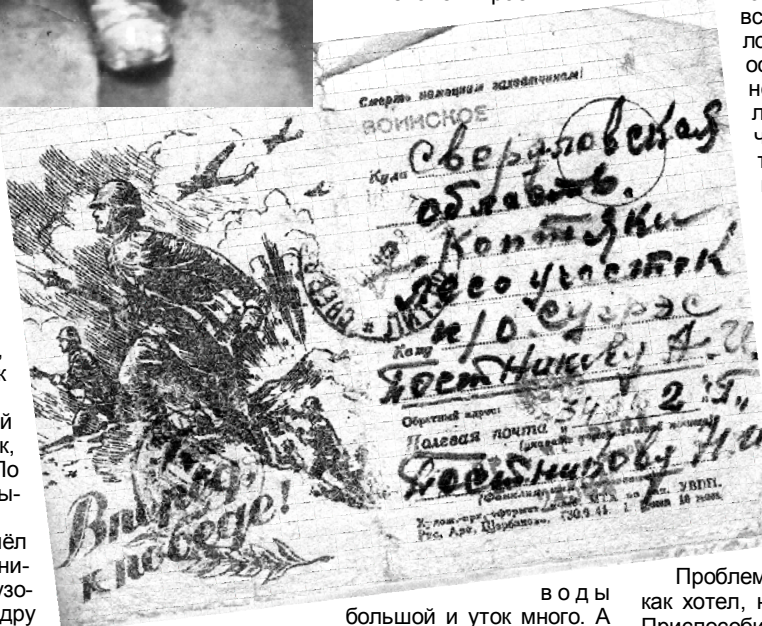 вс
ло
ос
не
л
ч
т
Смерть немецким захватчикам!
ВОИНСКОЕ
Куда Свердловская
область.
Коптяки
Лесоучасток
п/о. Сугрэс
Кому Постникову А. И.
Обратный адрес:
Полевая почта
2 "Г"
Постникову Н. И.
Вперед,
к победе!
к
й
к,
По
ы-
ёл
ни-
узо-
дру
воды
большой и уток много. А
Проблем
как хотел, н
Приспособи